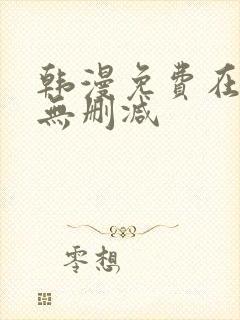 韩漫免費在
無删减
零想